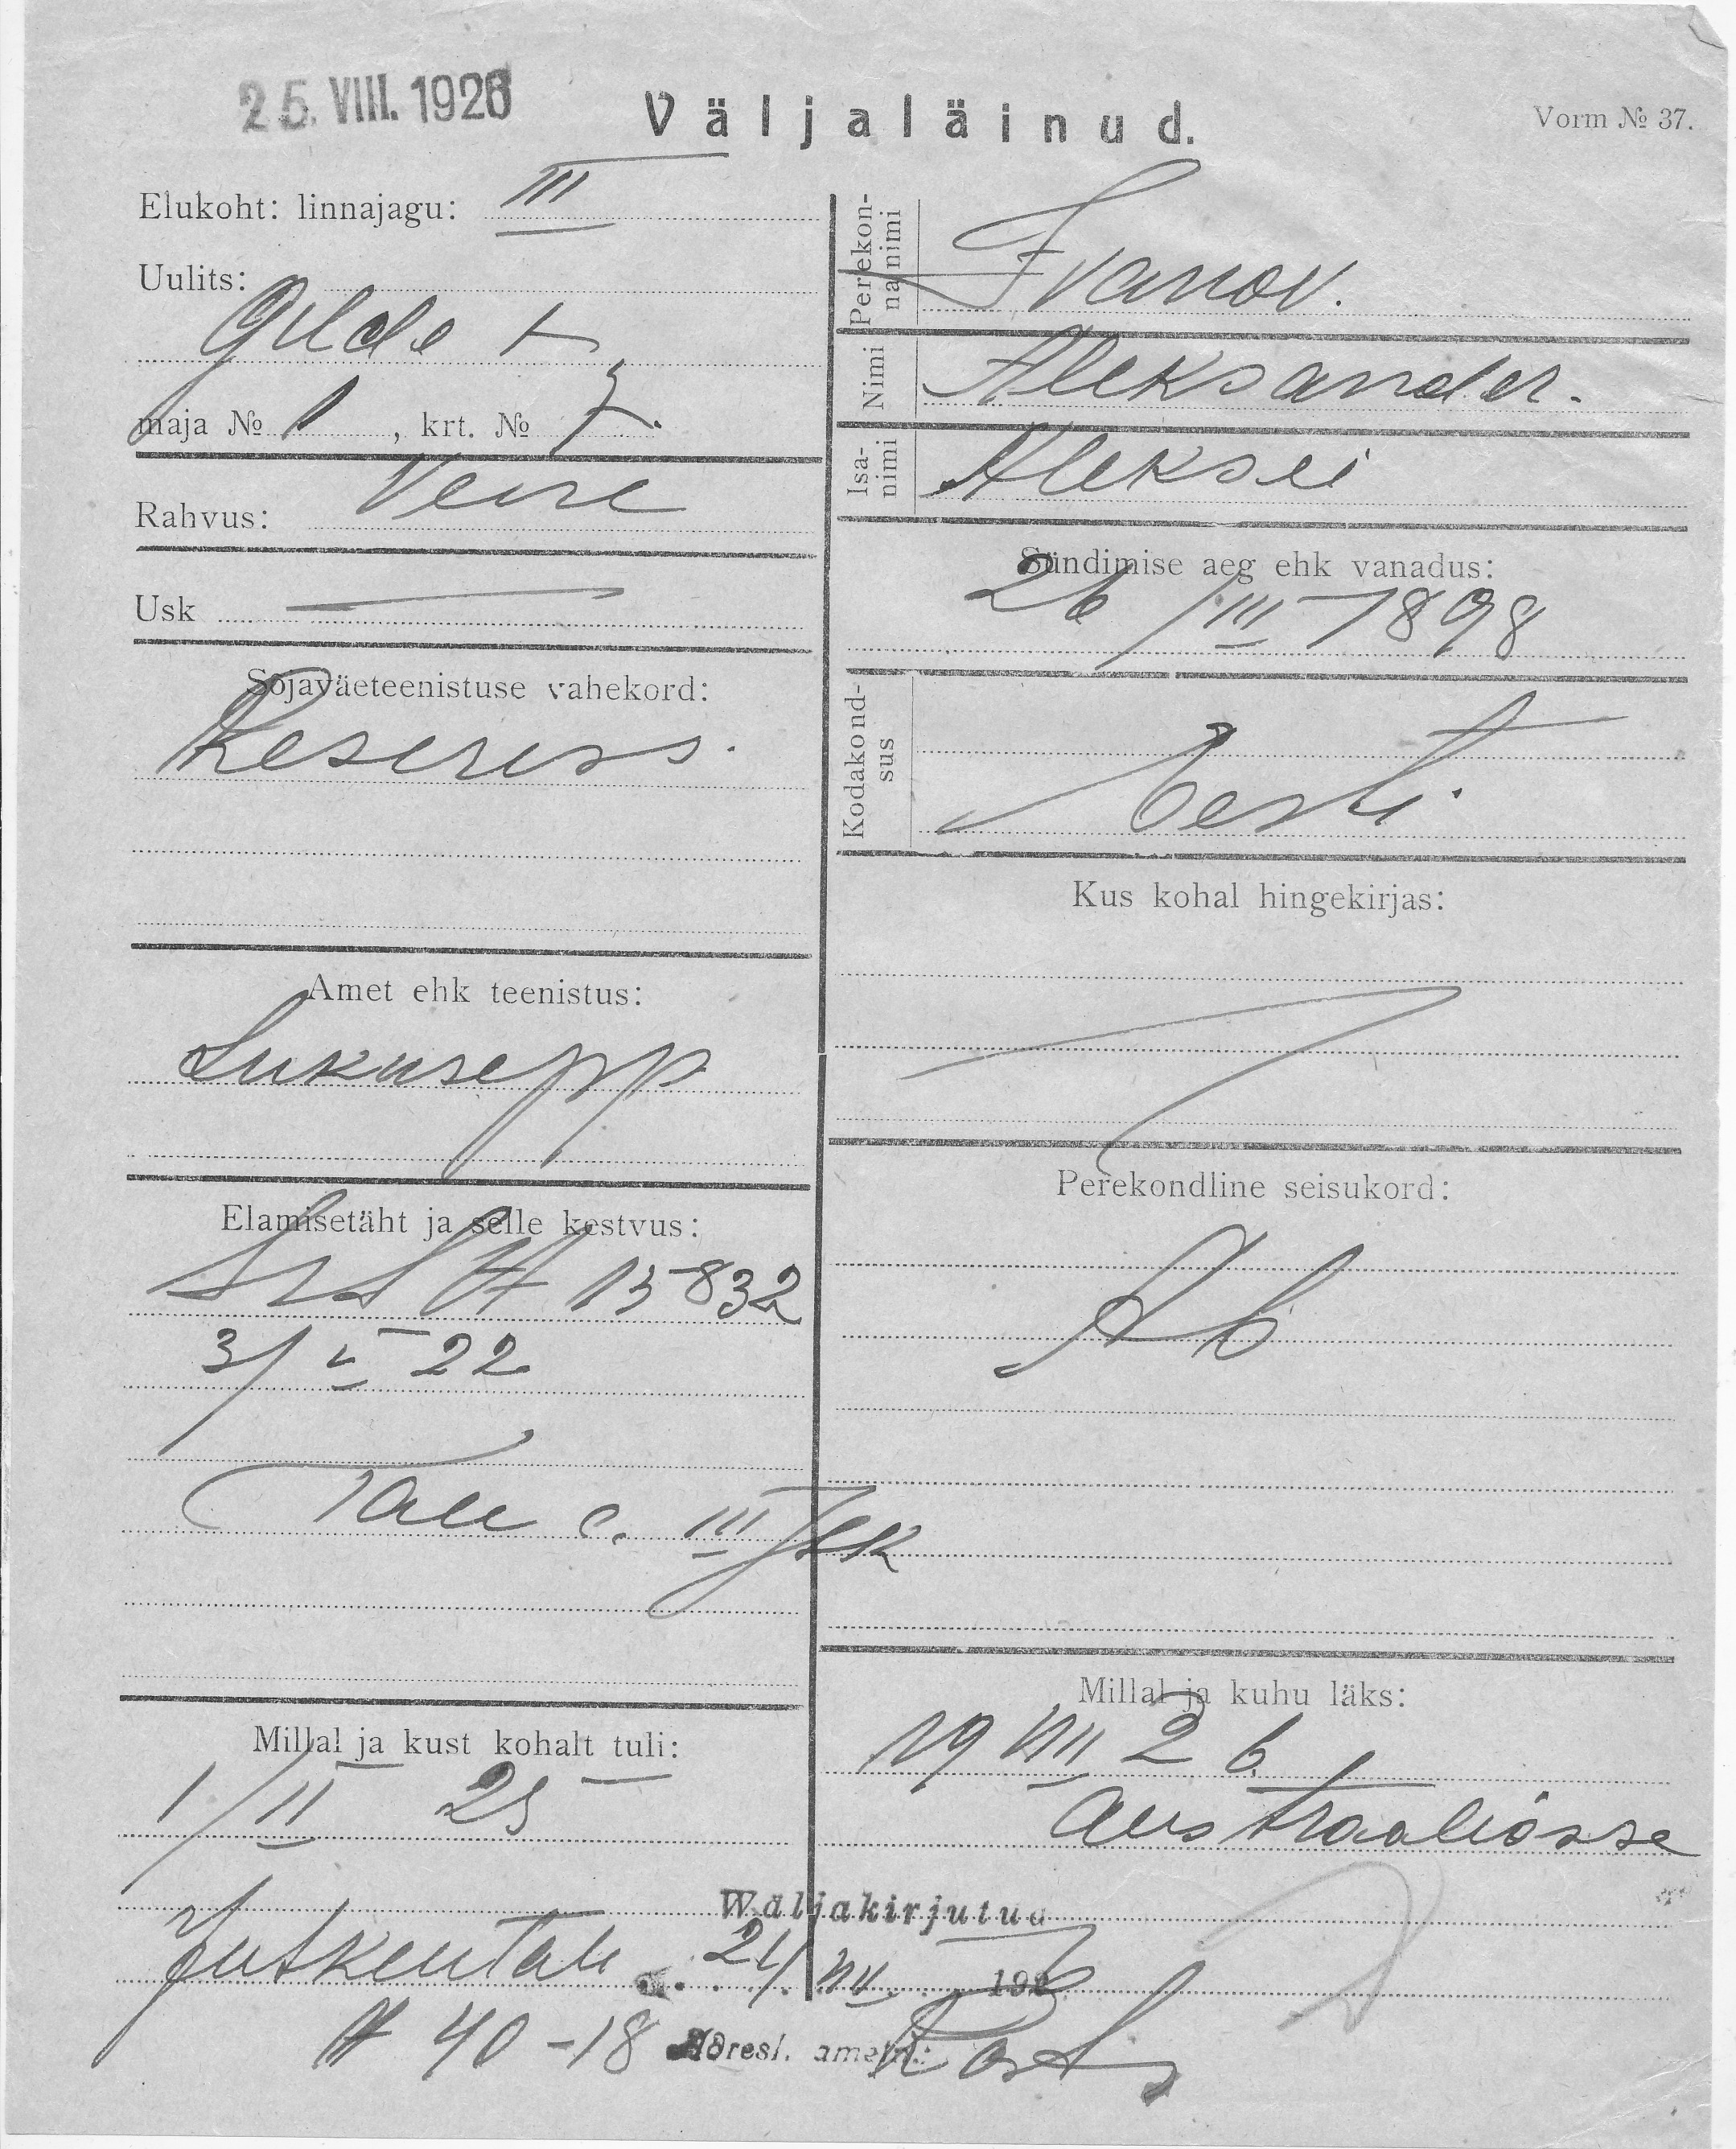 25. VIII. 1926
Väljaläinud.
Vorm № 37.
Elukoht: linnajagu: III
Uulits:
Gilde t
maja № 1, krt. № 7.
Rahvus: Vene
Usk —
Sõjaväeteenistuse vahekord:
Reserves.
Amet ehk teenistus:
Lukusepp
Elamisetäht ja selle kestvus:
A 15832
31/V 22
Tall III Jsk
Millal ja kust kohalt tuli:
1/II 25
Jutkentali
40-18
Perekonna nimi
Ivanov.
Nimi
Aleksander.
Isa-nimi
Aleksei
Sündimise aeg ehk vanadus:
26/III 1898
Kodakond-sus
Eesti.
Kus kohal hingekirjas:
Perekondline seisukord:
Ab
Millal ja kuhu läks:
19 VIII 26
Austraaliasse
Wäljakirjutud
21/VIII 1926
Adresl. ametn.: